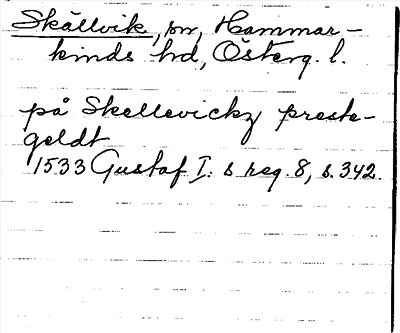 Skällvik, sn, Hammar-
kinds hd, Österg. l.
på Skellevickz preste-
geldt
1533 Gustaf I:s reg. 8, s. 342.